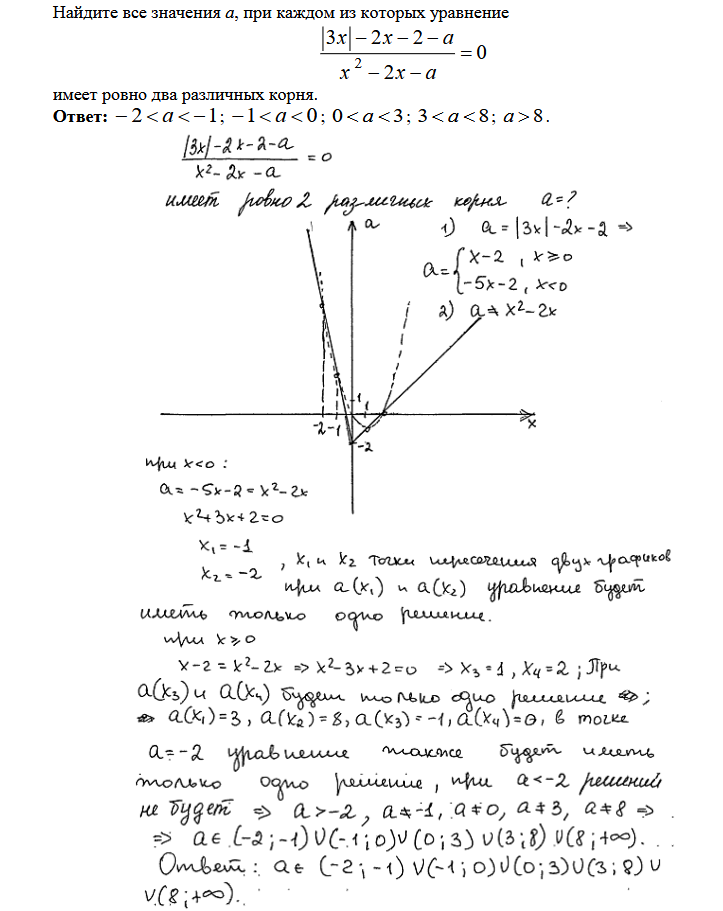 Найдите все значения a, при каждом из которых уравнение
|3x| − 2x − 2 − a
x² − 2x − a
= 0
имеет ровно два различных корня.
Ответ: −2 < a < −1; −1 < a < 0; 0 < a < 3; 3 < a < 8; a > 8.
|3x| − 2x − 2 − a
x² − 2x − a
= 0
имеет ровно 2 различных корня a = ?
a
1) a = |3x| − 2x − 2 ⇒
a = { x − 2 , x ≥ 0
−5x − 2 , x < 0
2) a ≠ x² − 2x
1
1
-2 -1
x
-2
при x < 0 :
a = −5x − 2 = x² − 2x
x² + 3x + 2 = 0
x₁ = −1
x₂ = −2
, x₁ и x₂ точки пересечения двух графиков
при a(x₁) и a(x₂) уравнение будет
иметь только одно решение.
при x ≥ 0
x − 2 = x² − 2x ⇒ x² − 3x + 2 = 0 ⇒ x₃ = 1 , x₄ = 2 ; При
a(x₃) и a(x₄) будет только одно решение ;
a(x₁) = 3 , a(x₂) = 8, a(x₃) = −1, a(x₄) = 0, в точке
a = −2 уравнение также будет иметь
только одно решение, при a < −2 решений
не будет ⇒ a > −2 , a ≠ −1, a ≠ 0, a ≠ 3, a ≠ 8 ⇒
⇒ a ∈ (−2 ; −1) ∪ (−1 ; 0) ∪ (0 ; 3) ∪ (3 ; 8) ∪ (8 ; +∞).
Ответ : a ∈ (−2 ; −1) ∪ (−1 ; 0) ∪ (0 ; 3) ∪ (3 ; 8) ∪
∪ (8 ; +∞).